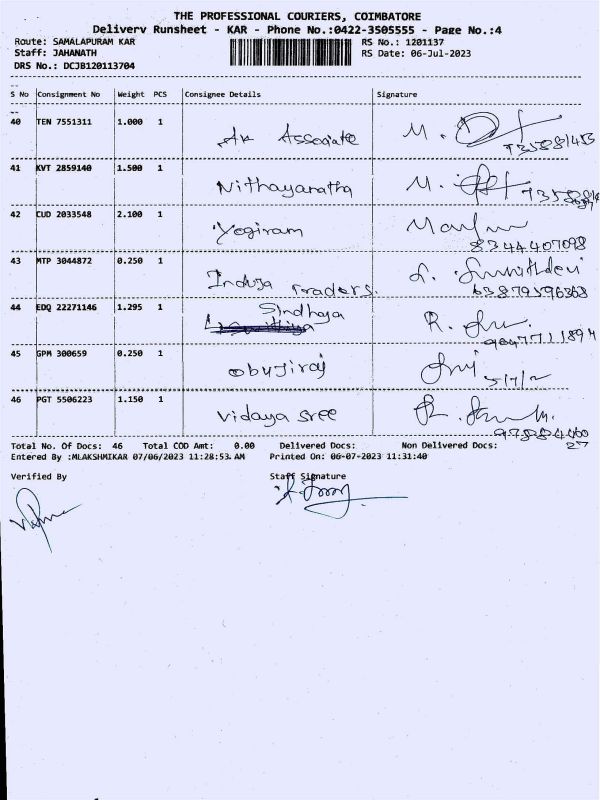 THE PROFESSIONAL COURIERS, COIMBATORE
Delivery Runsheet - KAR - Phone No.:0422-3505555 - Page No.:4
Route: SAMALAPURAM KAR RS No.: 1201137
Staff: JAHANATH RS Date: 06-Jul-2023
DRS No.: DCJB120113704
S No Consignment No Weight PCS Consignee Details Signature
40 TEN 7551311 1.000 1 Ak Associate M.
41 KVT 2859140 1.500 1 Nithayanatha M.
42 CUD 2033548 2.100 1 Yogiram
8344407098
43 MTP 3044872 0.250 1 Induja Traders.
63879596368
44 EDQ 22271146 1.295 1 Sindhaja R.
45 GPM 300659 0.250 1 obujiraj
46 PGT 5506223 1.150 1 vidaya sree
Total No. Of Docs: 46 Total COD Amt: 0.00 Delivered Docs: Non Delivered Docs:
Entered By :MLAKSHMIKAR 07/06/2023 11:28:53 AM Printed On: 06-07-2023 11:31:40
Verified By Staff Signature